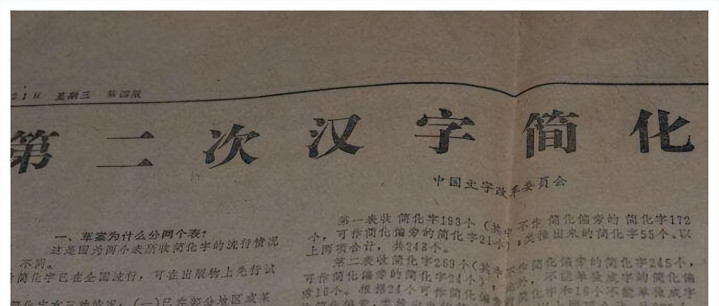 星期三 第四版
第二次汉字简化
中国文字改革委员会
一、草案为什么分两个表?
这是因为两个表所收简化字的流行情况
不同。
简化字已在全国流行,可在出版物上先行试
(一)已在部分地区或某
第一表收简化字193个(其中不作简化偏旁的简化字172
个,可作简化偏旁的简化字21个),类推出来的简化字55个。以
上两项合计,共248个。
第二表收简化字269个(其中不作简化偏旁的简化字245个,
可作简化偏旁的简化字24个),
旁16个。根据24个可作简化偏旁